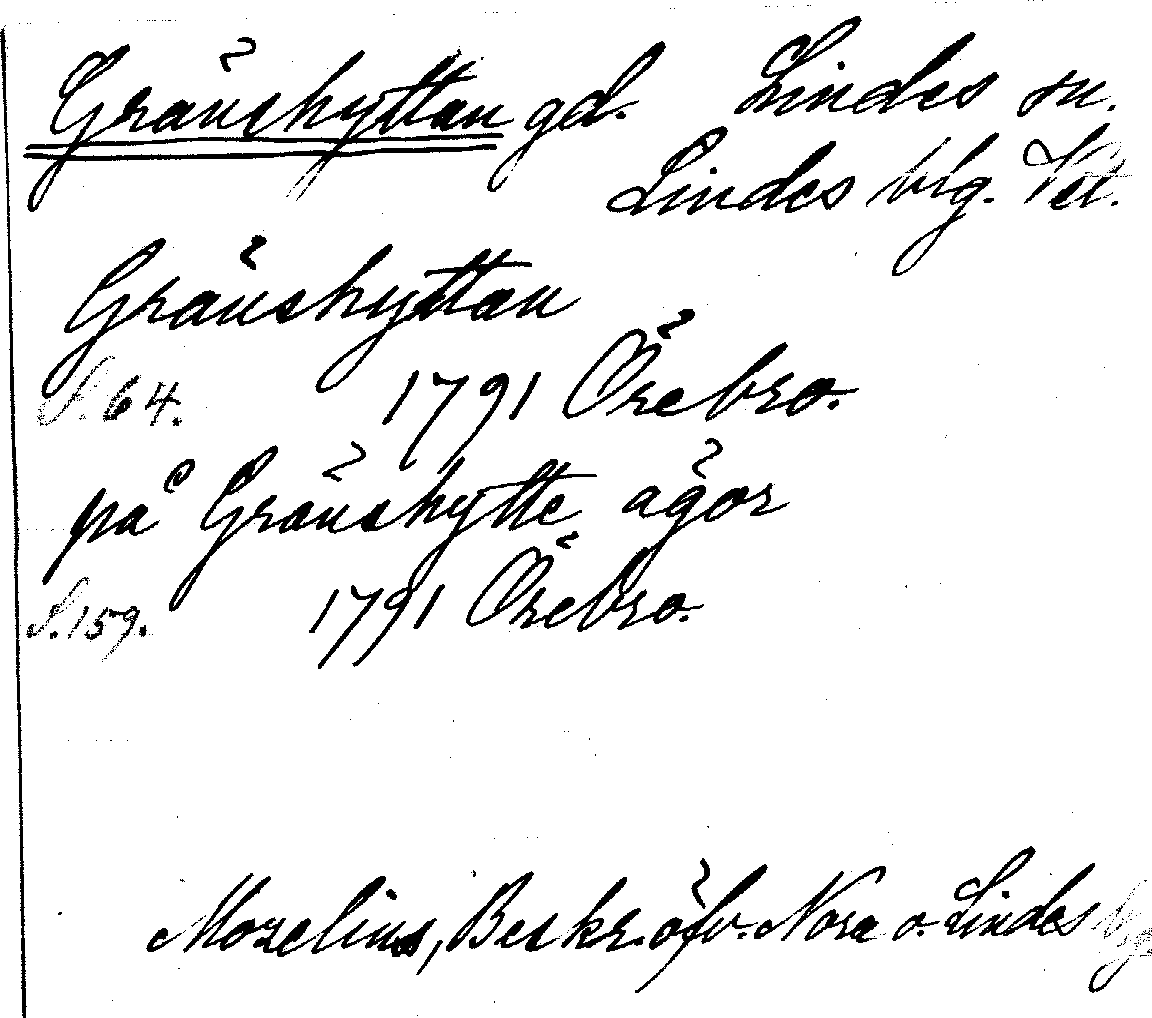 Gränshyttan gd. Lindes sn.
Lindes blg. Vet.
Gränshyttan
S. 64. 1791 Örebro.
på Gränshytte ägor
S. 159. 1791 Örebro.
Morelius, Beskr. öfv. Nora o. Lindes blg.